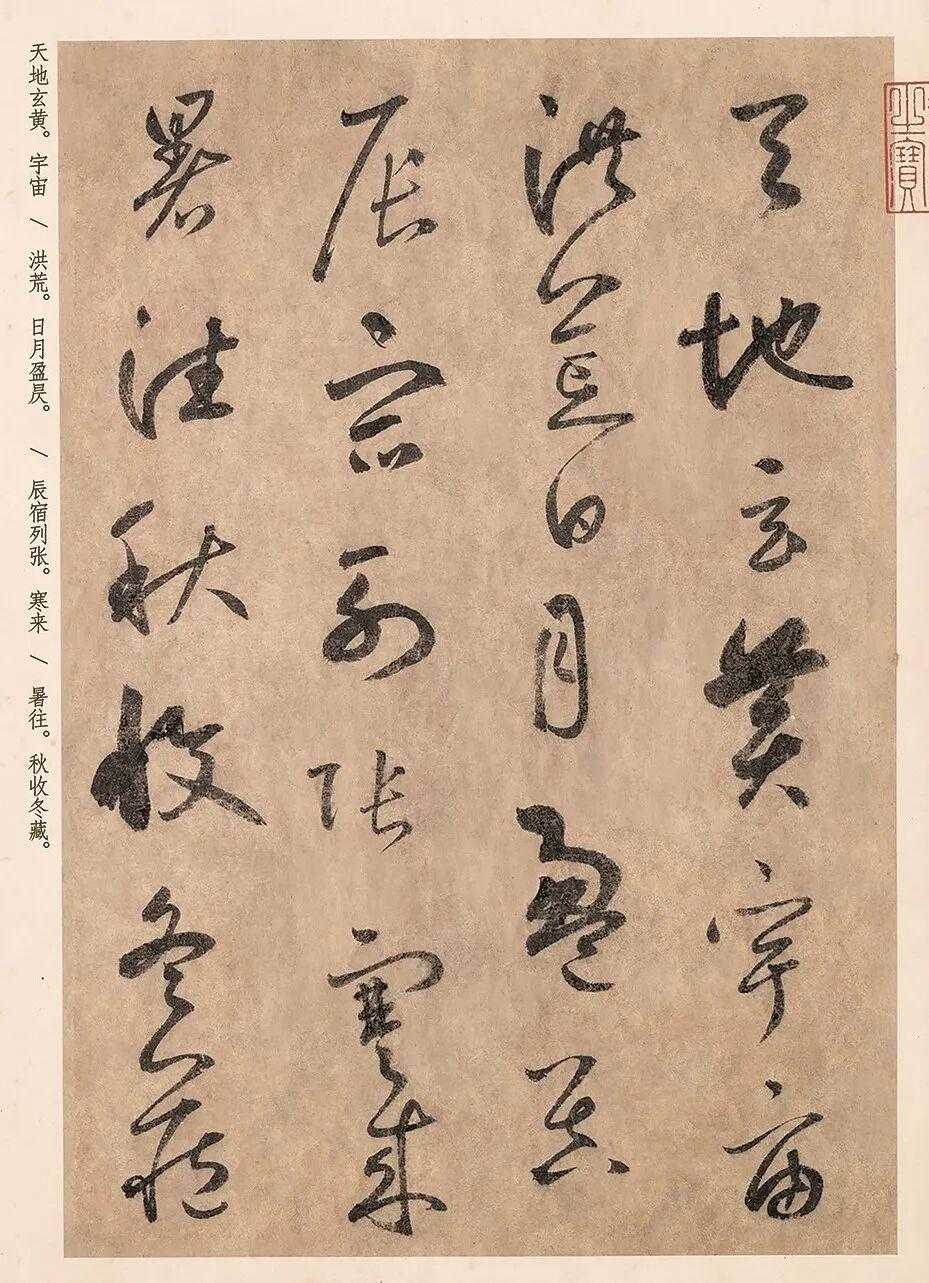 天地玄黄宇宙
洪荒日月盈昃
辰宿列张寒来
暑往秋收冬藏
天地玄黄。宇宙 \ 洪荒。日月盈昃。 \ 辰宿列张。寒来 \ 暑往。秋收冬藏。